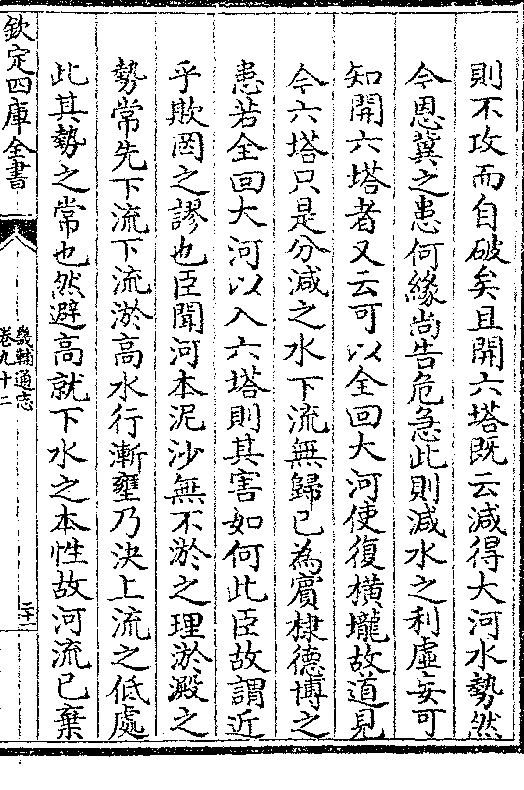 則不攻而自破矣且開六塔既云減得大河水勢然
今恩冀之患何緣尚告危急此則減水之利虛妄可
知開六塔者又云可以全回大河使復横壠故道見
今六塔只是分減之水下流無歸已為賓棣德博之
患若全回大河以入六塔則其害如何此臣故謂近
乎欺罔之謬也臣聞河本泥沙無不淤之理淤澱之
勢常先下流下流淤高水行漸壅乃決上流之低處
此其勢之常也然避高就下水之本性故河流已棄
欽定四庫全書
畿輔通志
卷九十二
二十三